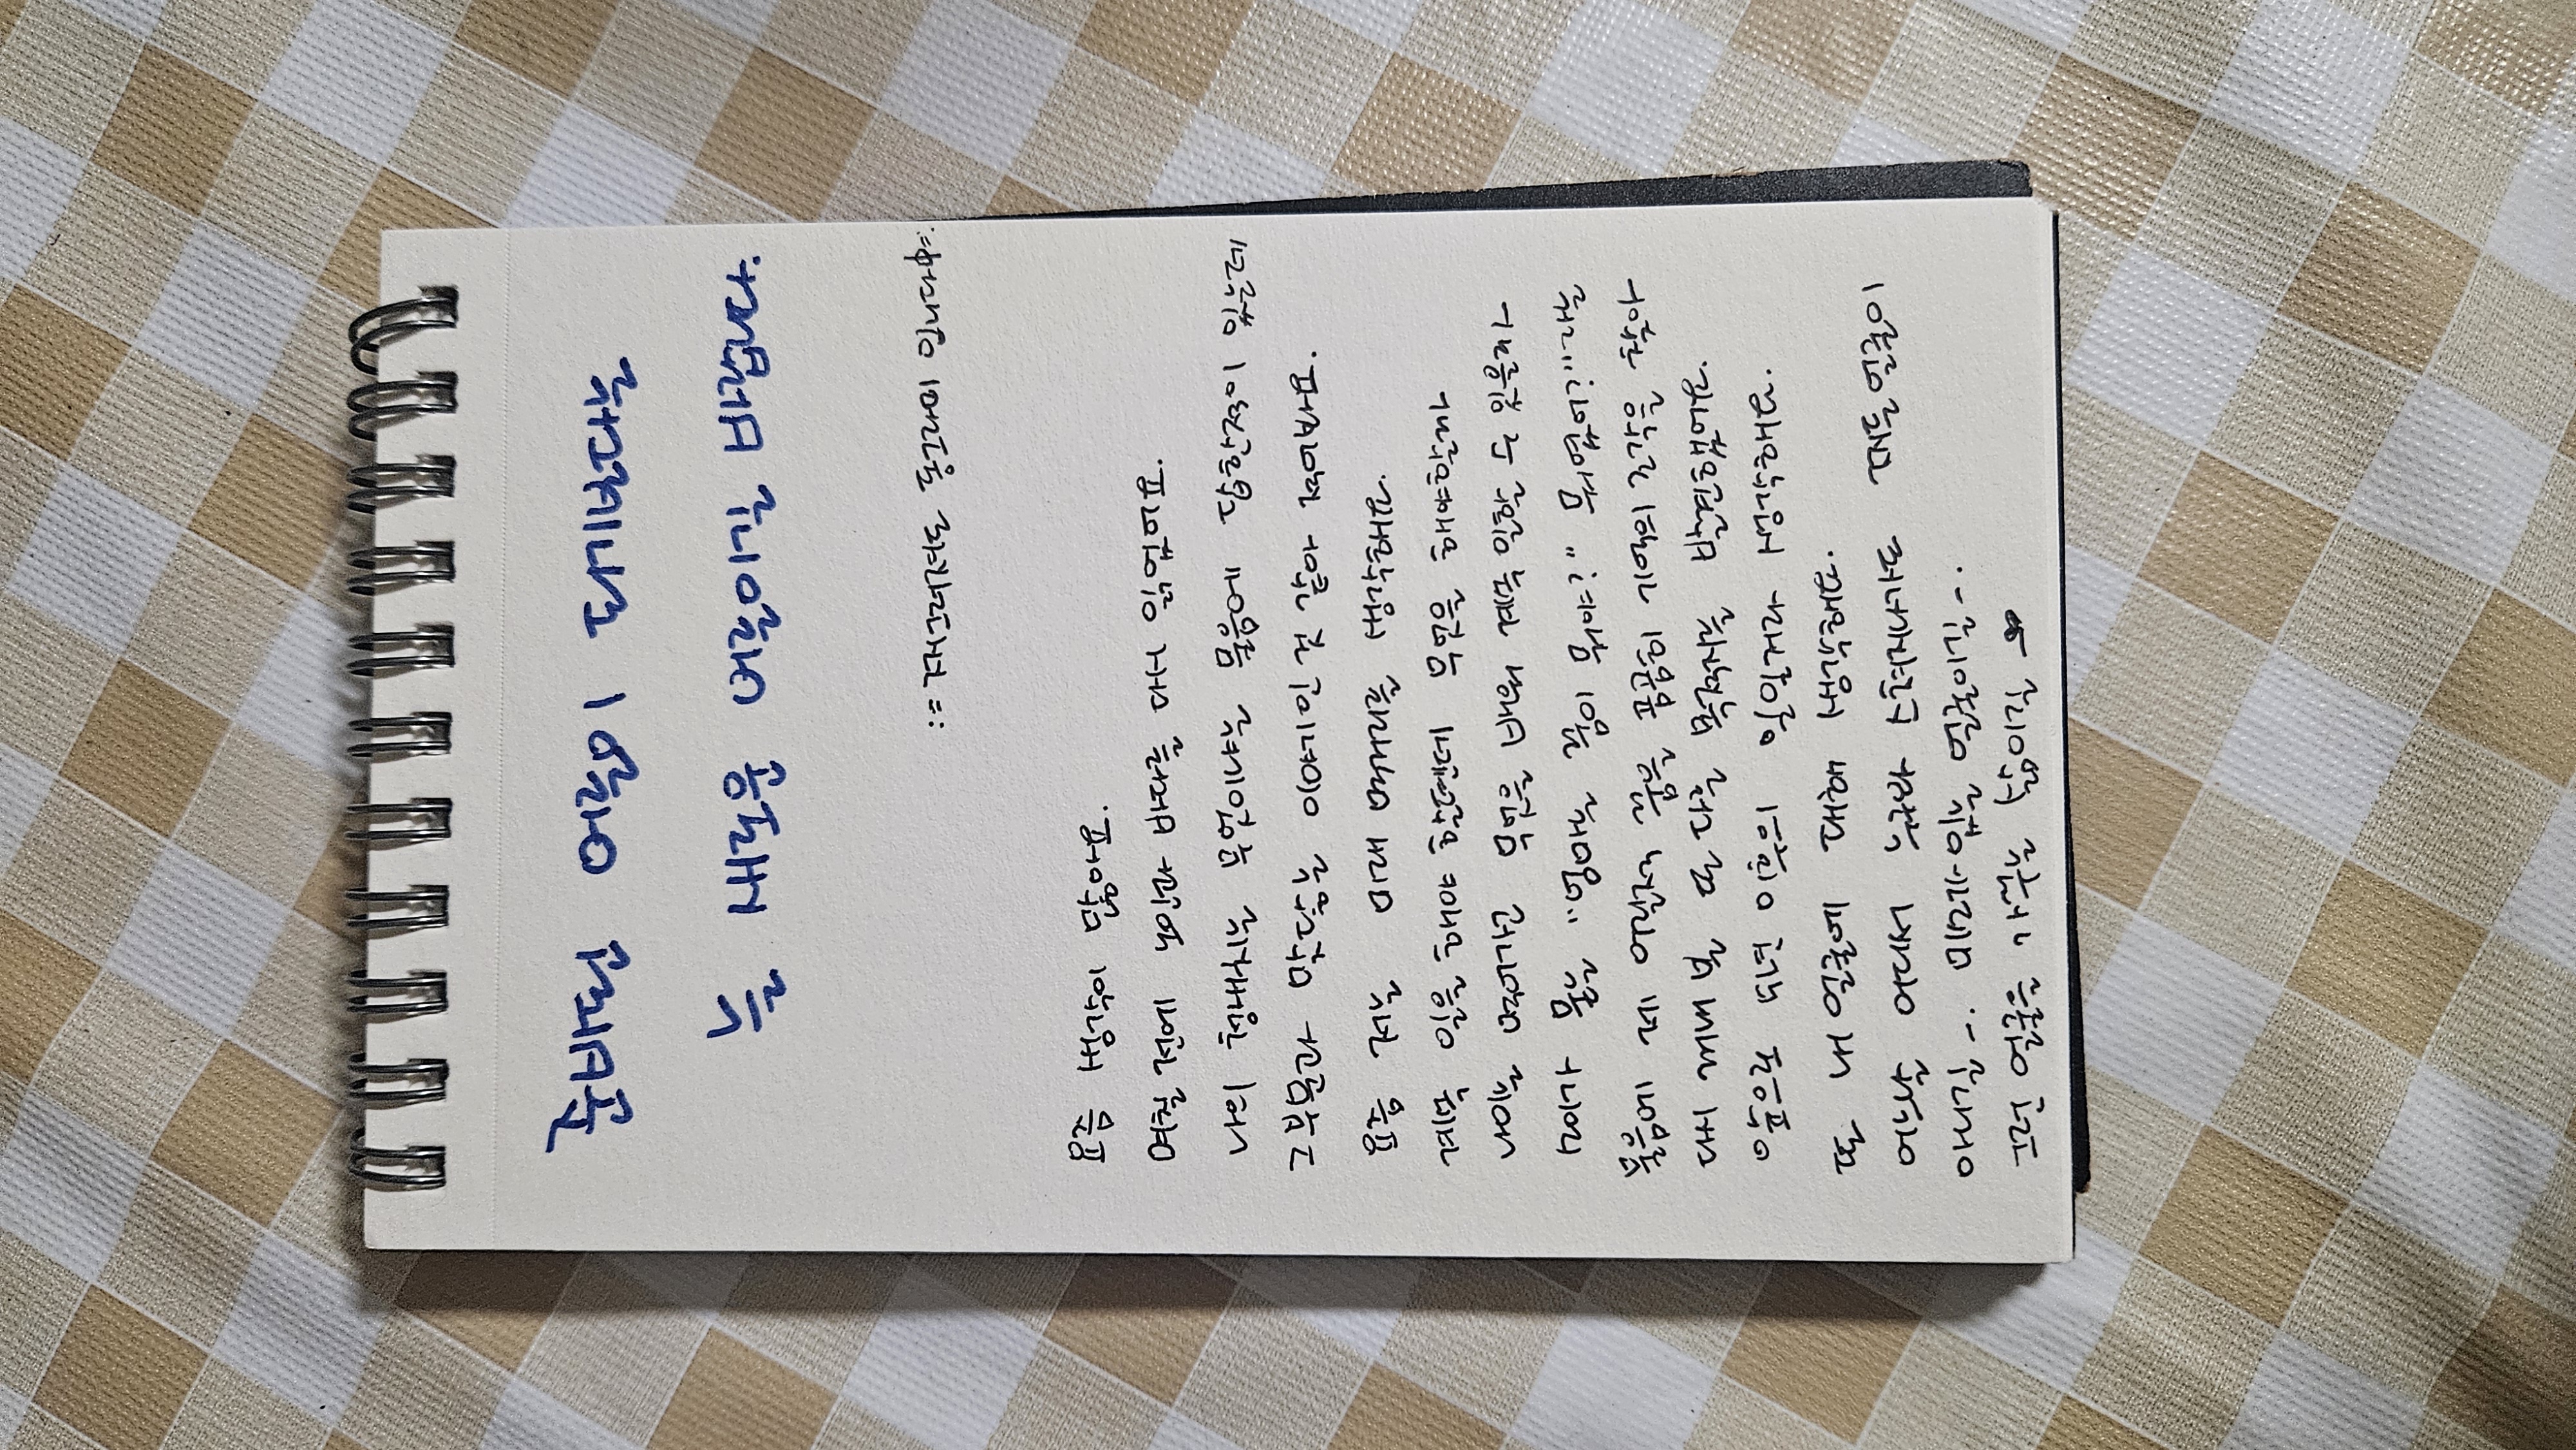 준비된 어른이 되기보다는
늘 새로운 어른이길 바랍니다.
:= 찌그러져도 동그라미 입니다 中=:
요즘 생각이 많아요.
며칠 전에 노인과 바다를 다시 읽었어요.
나의 청새치는 무엇이냐는 물음에 답한적이 있는데
그부분과 맞닿는 이야기인 것 같아 적어봐요.
요즘 저는 미래 먹거리를 생각해요.
계속 일을 해야 할텐데 무엇을 해야할까
나이는 먹어가고 무엇을 배워 계속 일할 수 있을까
가 묻는 "엄마는 꿈이 뭐야?" 뭐였어?"라는
물음에 제 어릴적 꿈을 곰곰히 기억의 조각을 찾아
다시 꺼내 본 또 다른 목적지를 발견했어요.
앞으로 5년 이후의 일일거라 생각해요.
또 내 얼굴에 대해 생각해요.
어느날 어디서 누군와 스쳐지나가도 찌든얼굴이
아니길 -. 미소가 있는 얼굴이길 -.
그런 얼굴을 가꾸는 삶이길